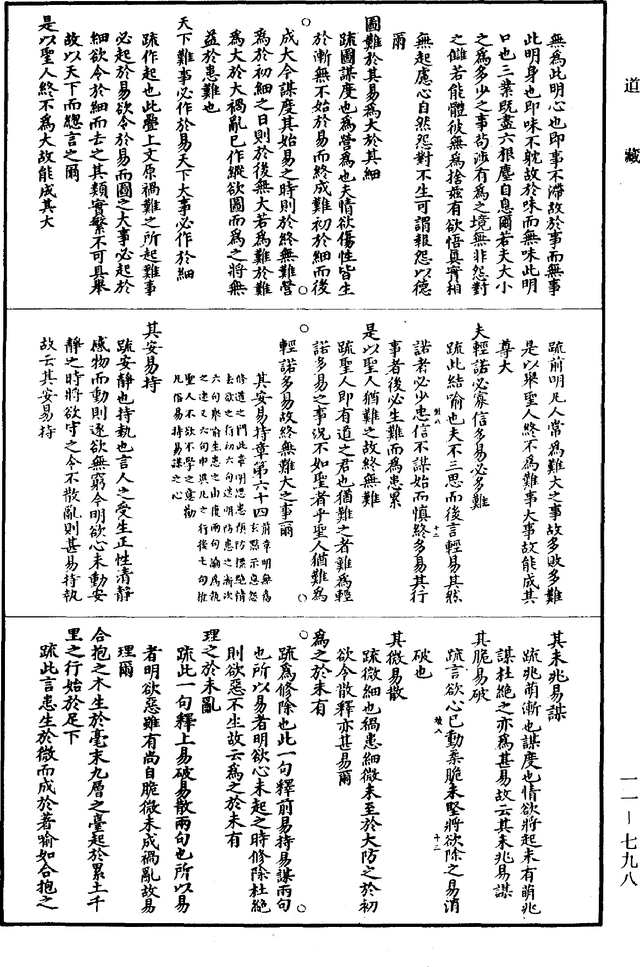 道藏
無為此明心也即事不滯故於事而無事
此明身也即味不躭故於味而無味此明
口也三業既盡六根塵自息爾若夫大小
之為多少之事苟涉有為之境無非怨對
之讎若能體彼無為捨茲有欲悟真實相
無起慮心自然怨對不生可謂報怨以德
爾
圖難於其易為大於其細
疏圖謀度也為營為也夫情欲傷性皆生
於漸無不始於易而終成難初於細而後
成大令謀度其始易之時則於終無難營
為於初細之日則於後無大若為難於難
為大於大禍亂已作縱欲圖而為之將無
益於患難也
天下難事必作於易天下大事必作於細
疏作起也此疊上文原禍難之所起難事
必起於易欲令於易而圖之大事必起於
細欲令於細而去之其類實繁不可具舉
故以天下而總言之爾
是以聖人終不為大故能成其大
疏前明凡人常為難大之事故多敗多難
是以舉聖人終不為難事大事故能成其
尊大
夫輕諾必寡信多易必多難
疏此結喻也夫不三思而後言輕易其然
諾者必少忠信不謀始而慎終多易其行
事者後必生難而為患累
是以聖人猶難之故終無難
疏聖人即有道之君也猶難之者難為輕
諾多易之事況不如聖者乎聖人猶難為
輕諾多易故終無難大之事爾
其安易持章第六十四
其安易持
疏安靜也持執也言人之受生正性清靜
感物而動則逐欲無窮令明欲心未動安
靜之時將欲守之令不散亂則甚易持執
故云其安易持
其未兆易謀
疏兆萌漸也謀度也情欲將起未有萌兆
謀杜絕之亦為甚易故云其未兆易謀
其脆易破
疏言欲心已動柔脆未堅將欲除之易消
破也
其微易散
疏微細也禍患細微未至於大防之於初
欲令散釋亦甚易爾
為之於未有
疏為修除也此一句釋前易持易謀兩句
也所以易者明欲心未起之時修除杜絕
則欲惡不生故云為之於未有
理之於未亂
疏此一句釋上易破易散兩句也所以易
者明欲惡雖有尚自脆微未成禍亂故易
理爾
合抱之木生於毫末九層之臺起於累土千
里之行始於足下
疏此言患生於微而成於著喻如合抱之
一一—七九八